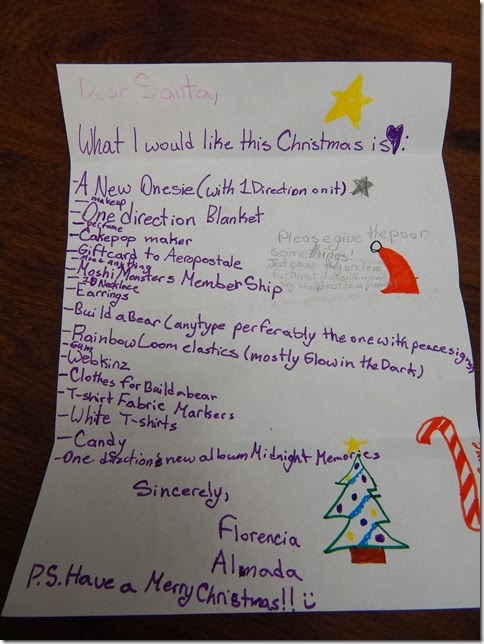 Dear Santa,
What I would like this Christmas is:
-A New Onesie (with 1Direction on it)
-makeup
-One direction Blanket
-perfume
-Cakepop maker
-Giftcard to Aeropostale
-Moshi Monsters MemberShip
-1D Necklace
-Earrings
-Build a Bear (any type perferably the one with peace signs)
-Rainbow Loom elastics (mostly Glow in the Dark)
-Gum
-Webkinz
-Clothes for Build a bear
-T-shirt Fabric Markers
-White T-shirts
-Candy
-One direction's new album Midnight Memories
Please give the poor
somethings!
Just cause they are less
Sincerely,
Florencia
Almada
P.S. Have a Merry Christmas!!